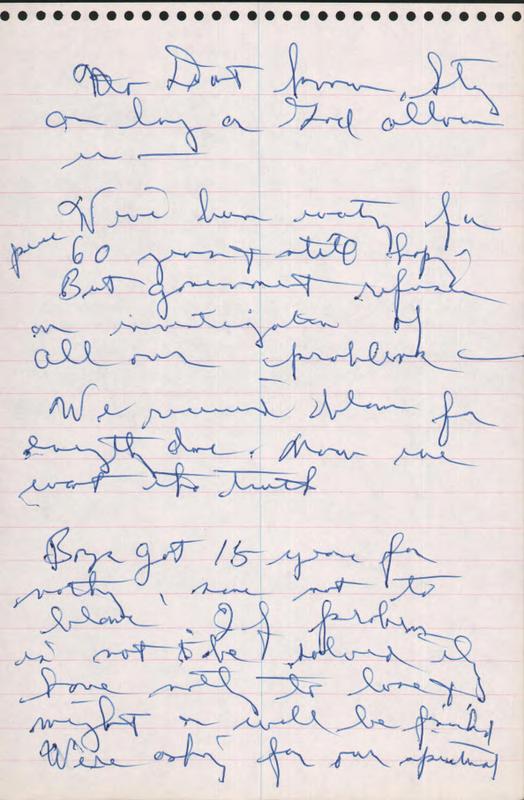 Dont know, Stay
as long as God allows
us —
We've been waiting for
peace 60 years & still hoping
But government refuses
an investigation of
all our problems —
We received blame for
everything done. Now we
want the truth
Boys got 15 years for
nothing, were not to
blame. If problem
is not to be solved they
have nothing to lose &
might as well be
We're asking for our spiritual